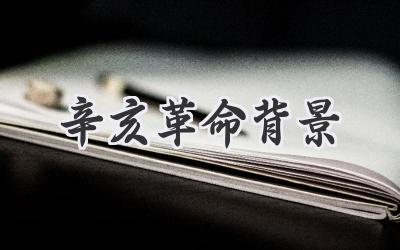 辛亥革命背景